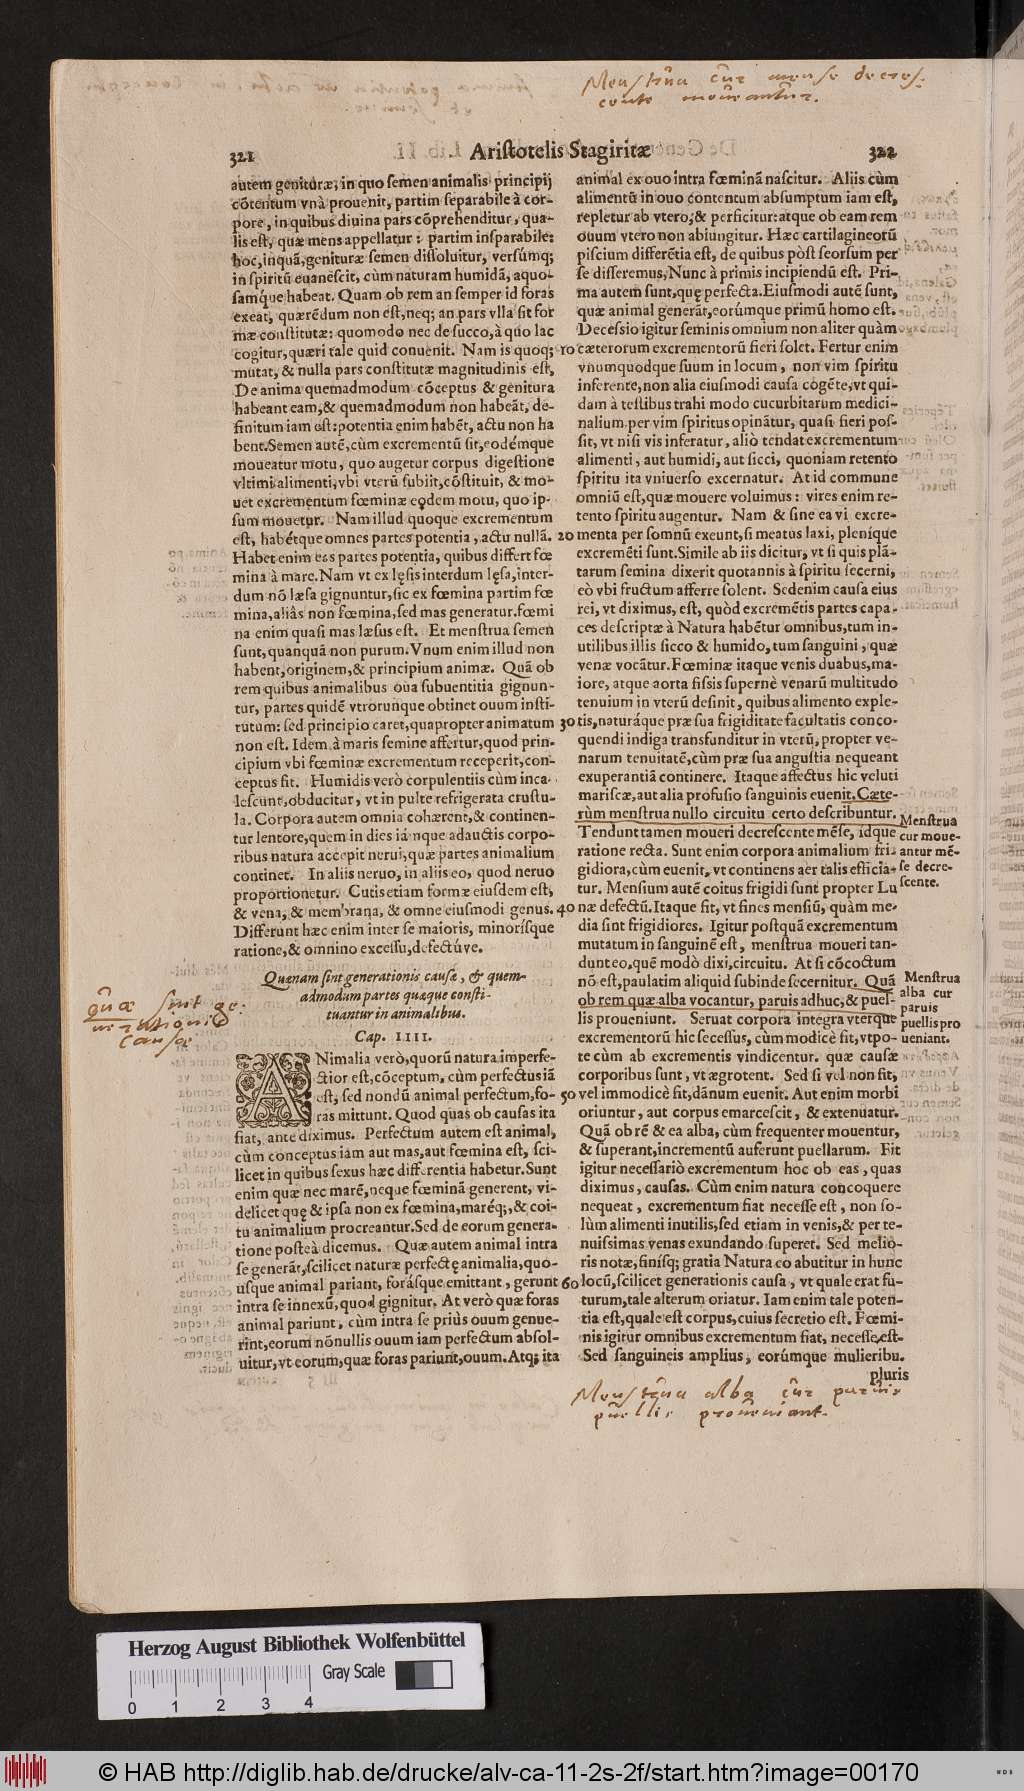 Menstrua cur mense decres-
cente moueantur.
321
Aristotelis Stagiritæ
322
autem genituræ, in quo semen animalis principij
cōtentum vnà prouenit, partim separabile à cor-
pore, in quibus diuina pars cōprehenditur, qua-
lis est, quæ mens appellatur: partim insparabile:
hoc, inquā, genituræ semen dissoluitur, versúmq;
in spiritū euanescit, cùm naturam humidā, aquo-
samq́ue habeat. Quam ob rem an semper id foras
exeat, quærēdum non est, neq; an pars vlla sit for
mæ constitutæ: quomodo nec de succo, à quo lac
cogitur, quæri tale quid conuenit. Nam is quoq;
mutat, & nulla pars constitutæ magnitudinis est,
De anima quemadmodum cōceptus & genitura
habeant eam, & quemadmodum non habeāt, de-
finitum iam est: potentia enim habēt, actu non ha
bent. Semen autē, cùm excrementū sit, eodémque
moueatur motu, quo augetur corpus digestione
vltimi alimenti, vbi vterū subiit, cōstituit, & mo-
uet excrementum fœminæ eodem motu, quo ip-
sum mouetur. Nam illud quoque excrementum
est, habétque omnes partes potentia, actu nullā.
Habet enim eas partes potentia, quibus differt fœ
mina à mare. Nam vt ex lęsis interdum lęsa, inter-
dum nō læsa gignuntur, sic ex fœmina partim fœ
mina, aliâs non fœmina, sed mas generatur. fœmi
na enim quasi mas læsus est. Et menstrua semen
sunt, quanquā non purum. Vnum enim illud non
habent, originem, & principium animæ. Quā ob
rem quibus animalibus oua subuentitia gignun-
tur, partes quidē vtrorunque obtinet ouum insti-
tutum: sed principio caret, quapropter animatum
non est. Idem à maris semine affertur, quod prin-
cipium vbi fœminæ excrementum receperit, con-
ceptus fit. Humidis verò corpulentiis cùm inca-
lescunt, obducitur, vt in pulte refrigerata crustu-
la. Corpora autem omnia cohærent, & continen-
tur lentore, quem in dies iánque adauctis corpo-
ribus natura accepit nerui, quæ partes animalium
continet. In aliis neruo, in aliis eo, quod neruo
proportionetur. Cutis etiam formæ eiusdem est,
& vena, & membrana, & omne eiusmodi genus.
Differunt hæc enim inter se maioris, minorísque
ratione, & omnino excessu, defectúve.
Quænam sint generationis causæ, & quem-
admodum partes quæque consti-
tuantur in animalibus.
Cap. IIII.
Quæ sint ge-
nerationis
causæ
ANimalia verò, quorū natura imperfe-
ctior est, cōceptum, cùm perfectus iā
est, sed nondū animal perfectum, fo-
ras mittunt. Quod quas ob causas ita
fiat, ante diximus. Perfectum autem est animal,
cùm conceptus iam aut mas, aut fœmina est, sci-
licet in quibus sexus hæc differentia habetur. Sunt
enim quæ nec marē, neque fœminā generent, vi-
delicet quę & ipsa non ex fœmina, maréq;, & coi-
tu animalium procreantur. Sed de eorum genera-
tione posteà dicemus. Quæ autem animal intra
se generāt, scilicet naturæ perfectę animalia, quo-
usque animal pariant, forásque emittant, gerunt
intra se innexū, quod gignitur. At verò quæ foras
animal pariunt, cùm intra se priùs ouum genue-
rint, eorum nōnullis ouum iam perfectum absol-
uitur, vt eorum, quæ foras pariunt, ouum. Atq; ita
animal ex ouo intra fœminā nascitur. Aliis cùm
alimentū in ouo contentum absumptum iam est,
repletur ab vtero, & perficitur: atque ob eam rem
ouum vtero non abiungitur. Hæc cartilagineorū
piscium differētia est, de quibus pòst seorsum per
se disseremus, Nunc à primis incipiendū est. Pri-
ma autem sunt, quę perfecta. Eiusmodi autē sunt,
quæ animal generāt, eorúmque primū homo est.
Decessio igitur seminis omnium non aliter quàm
10 cæterorum excrementorū fieri solet. Fertur enim
vnumquodque suum in locum, non vim spiritu
inferente, non alia eiusmodi causa cogēte, vt qui-
dam à testibus trahi modo cucurbitarum medici-
nalium per vim spiritus opinātur, quasi fieri pos-
sit, vt nisi vis inferatur, aliò tendat excrementum
alimenti, aut humidi, aut sicci, quoniam retento
spiritu ita vniuerso excernatur. At id commune
omniū est, quæ mouere voluimus: vires enim re-
tento spiritu augentur. Nam & sine ea vi excre-
20 menta per somnū exeunt, si meatus laxi, pleníque
excremēti sunt. Simile ab iis dicitur, vt si quis plā-
tarum semina dixerit quotannis à spiritu secerni,
eò vbi fructum afferre solent. Sed enim causa eius
rei, vt diximus, est, quòd excremētis partes capa-
ces descriptæ à Natura habētur omnibus, tum in-
utilibus illis sicco & humido, tum sanguini, quæ
venæ vocātur. Fœminæ itaque venis duabus, ma-
iore, atque aorta fissis supernè venarū multitudo
tenuium in vterū desinit, quibus alimento exple-
30 tis, naturáque præ sua frigiditate facultatis conco-
quendi indiga transfunditur in vterū, propter ve-
narum tenuitatē, cùm præ sua angustia nequeant
exuperantiā continere. Itaque affectus hic veluti
mariscæ, aut alia profusio sanguinis euenit. Cæte-
rùm menstrua nullo circuitu certo describuntur.
Tendunt tamen moueri decrescente mēse, idque
ratione recta. Sunt enim corpora animalium fri-
gidiora, cùm euenit, vt continens aer talis efficia-
tur. Mensium autē coitus frigidi sunt propter Lu
40 næ defectū. Itaque fit, vt fines mensiū, quàm me-
dia sint frigidiores. Igitur postquā excrementum
mutatum in sanguinē est, menstrua moueri tan-
dunt eo, quē modò dixi, circuitu. At si cōcoctum
nō est, paulatim aliquid subinde secernitur. Quā
ob rem quæ alba vocantur, paruis adhuc, & puel-
lis proueniunt. Seruat corpora integra vterque
excrementorū hic secessus, cùm modicè fit, vtpo-
te cùm ab excrementis vindicentur. quæ causæ
corporibus sunt, vt ægrotent. Sed si vel non fit,
50 vel immodicè fit, dānum euenit. Aut enim morbi
oriuntur, aut corpus emarcescit, & extenuatur.
Quā ob rē & ea alba, cùm frequenter mouentur,
& superant, incrementū auferunt puellarum. Fit
igitur necessariò excrementum hoc ob eas, quas
diximus, causas. Cùm enim natura concoquere
nequeat, excrementum fiat necesse est, non so-
lùm alimenti inutilis, sed etiam in venis, & per te-
nuissimas venas exundando superet. Sed melio-
ris notæ, finísq; gratia Natura eo abutitur in hunc
60 locū, scilicet generationis causa, vt quale erat fu-
turum, tale alterum oriatur. Iam enim tale poten-
tia est, quale est corpus, cuius secretio est. Fœmi-
nis igitur omnibus excrementum fiat, necesse est.
Sed sanguineis amplius, eorúmque mulieribu.
pluris
Menstrua
cur moue-
antur mē-
se decre-
scente.
Menstrua
alba cur
paruis
puellis pro
ueniant.
Menstrua alba cur paruis
puellis proueniant.
Herzog August Bibliothek Wolfenbüttel
Gray Scale
0 1 2 3 4
© HAB http://diglib.hab.de/drucke/alv-ca-11-2s-2f/start.htm?image=00170